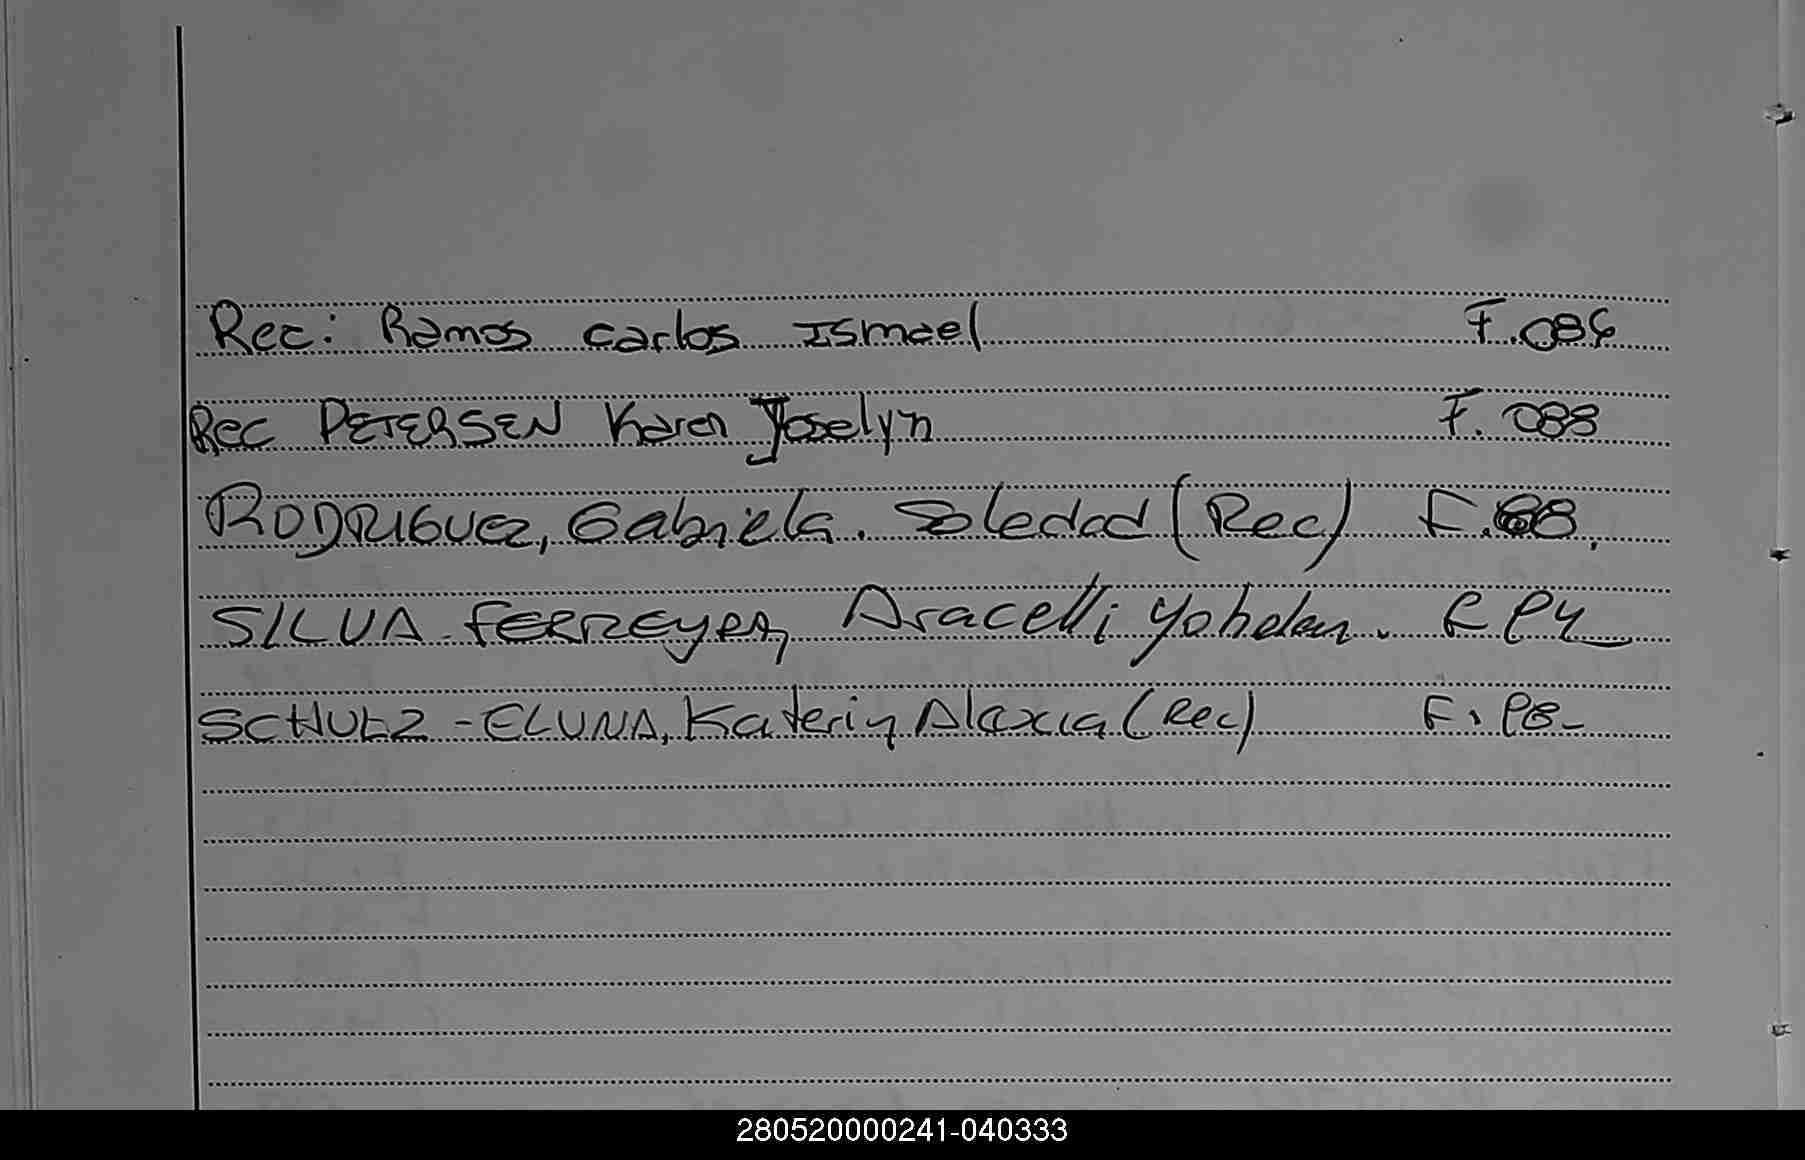 Rec: Ramos Carlos Ismael F.086
Rec PETERSEN Karen Joselyn F. 088
RODRIGUEZ, Gabriela. Soledad (Rec) F.88.
SILVA FERREYRA, Aracelli F. 94
SCHULZ - ELUNA, Katerin Alexia (Rec) F. 98-
280520000241-040333